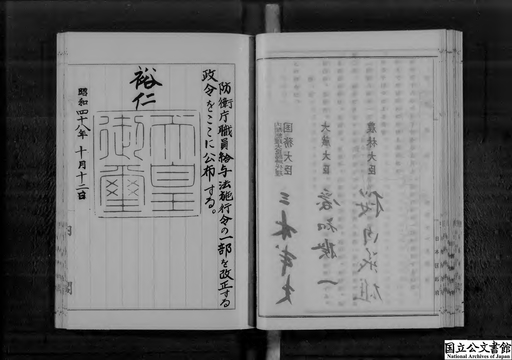 農林大臣 桜内義雄
大蔵大臣 愛知揆一
国務大臣
三木武夫
防衛庁職員給与法施行令の一部を改正する
政令をここに公布する。
裕仁
天皇
御璽
昭和四十八年十月十二日
内閣
国立公文書館
National Archives of Japan